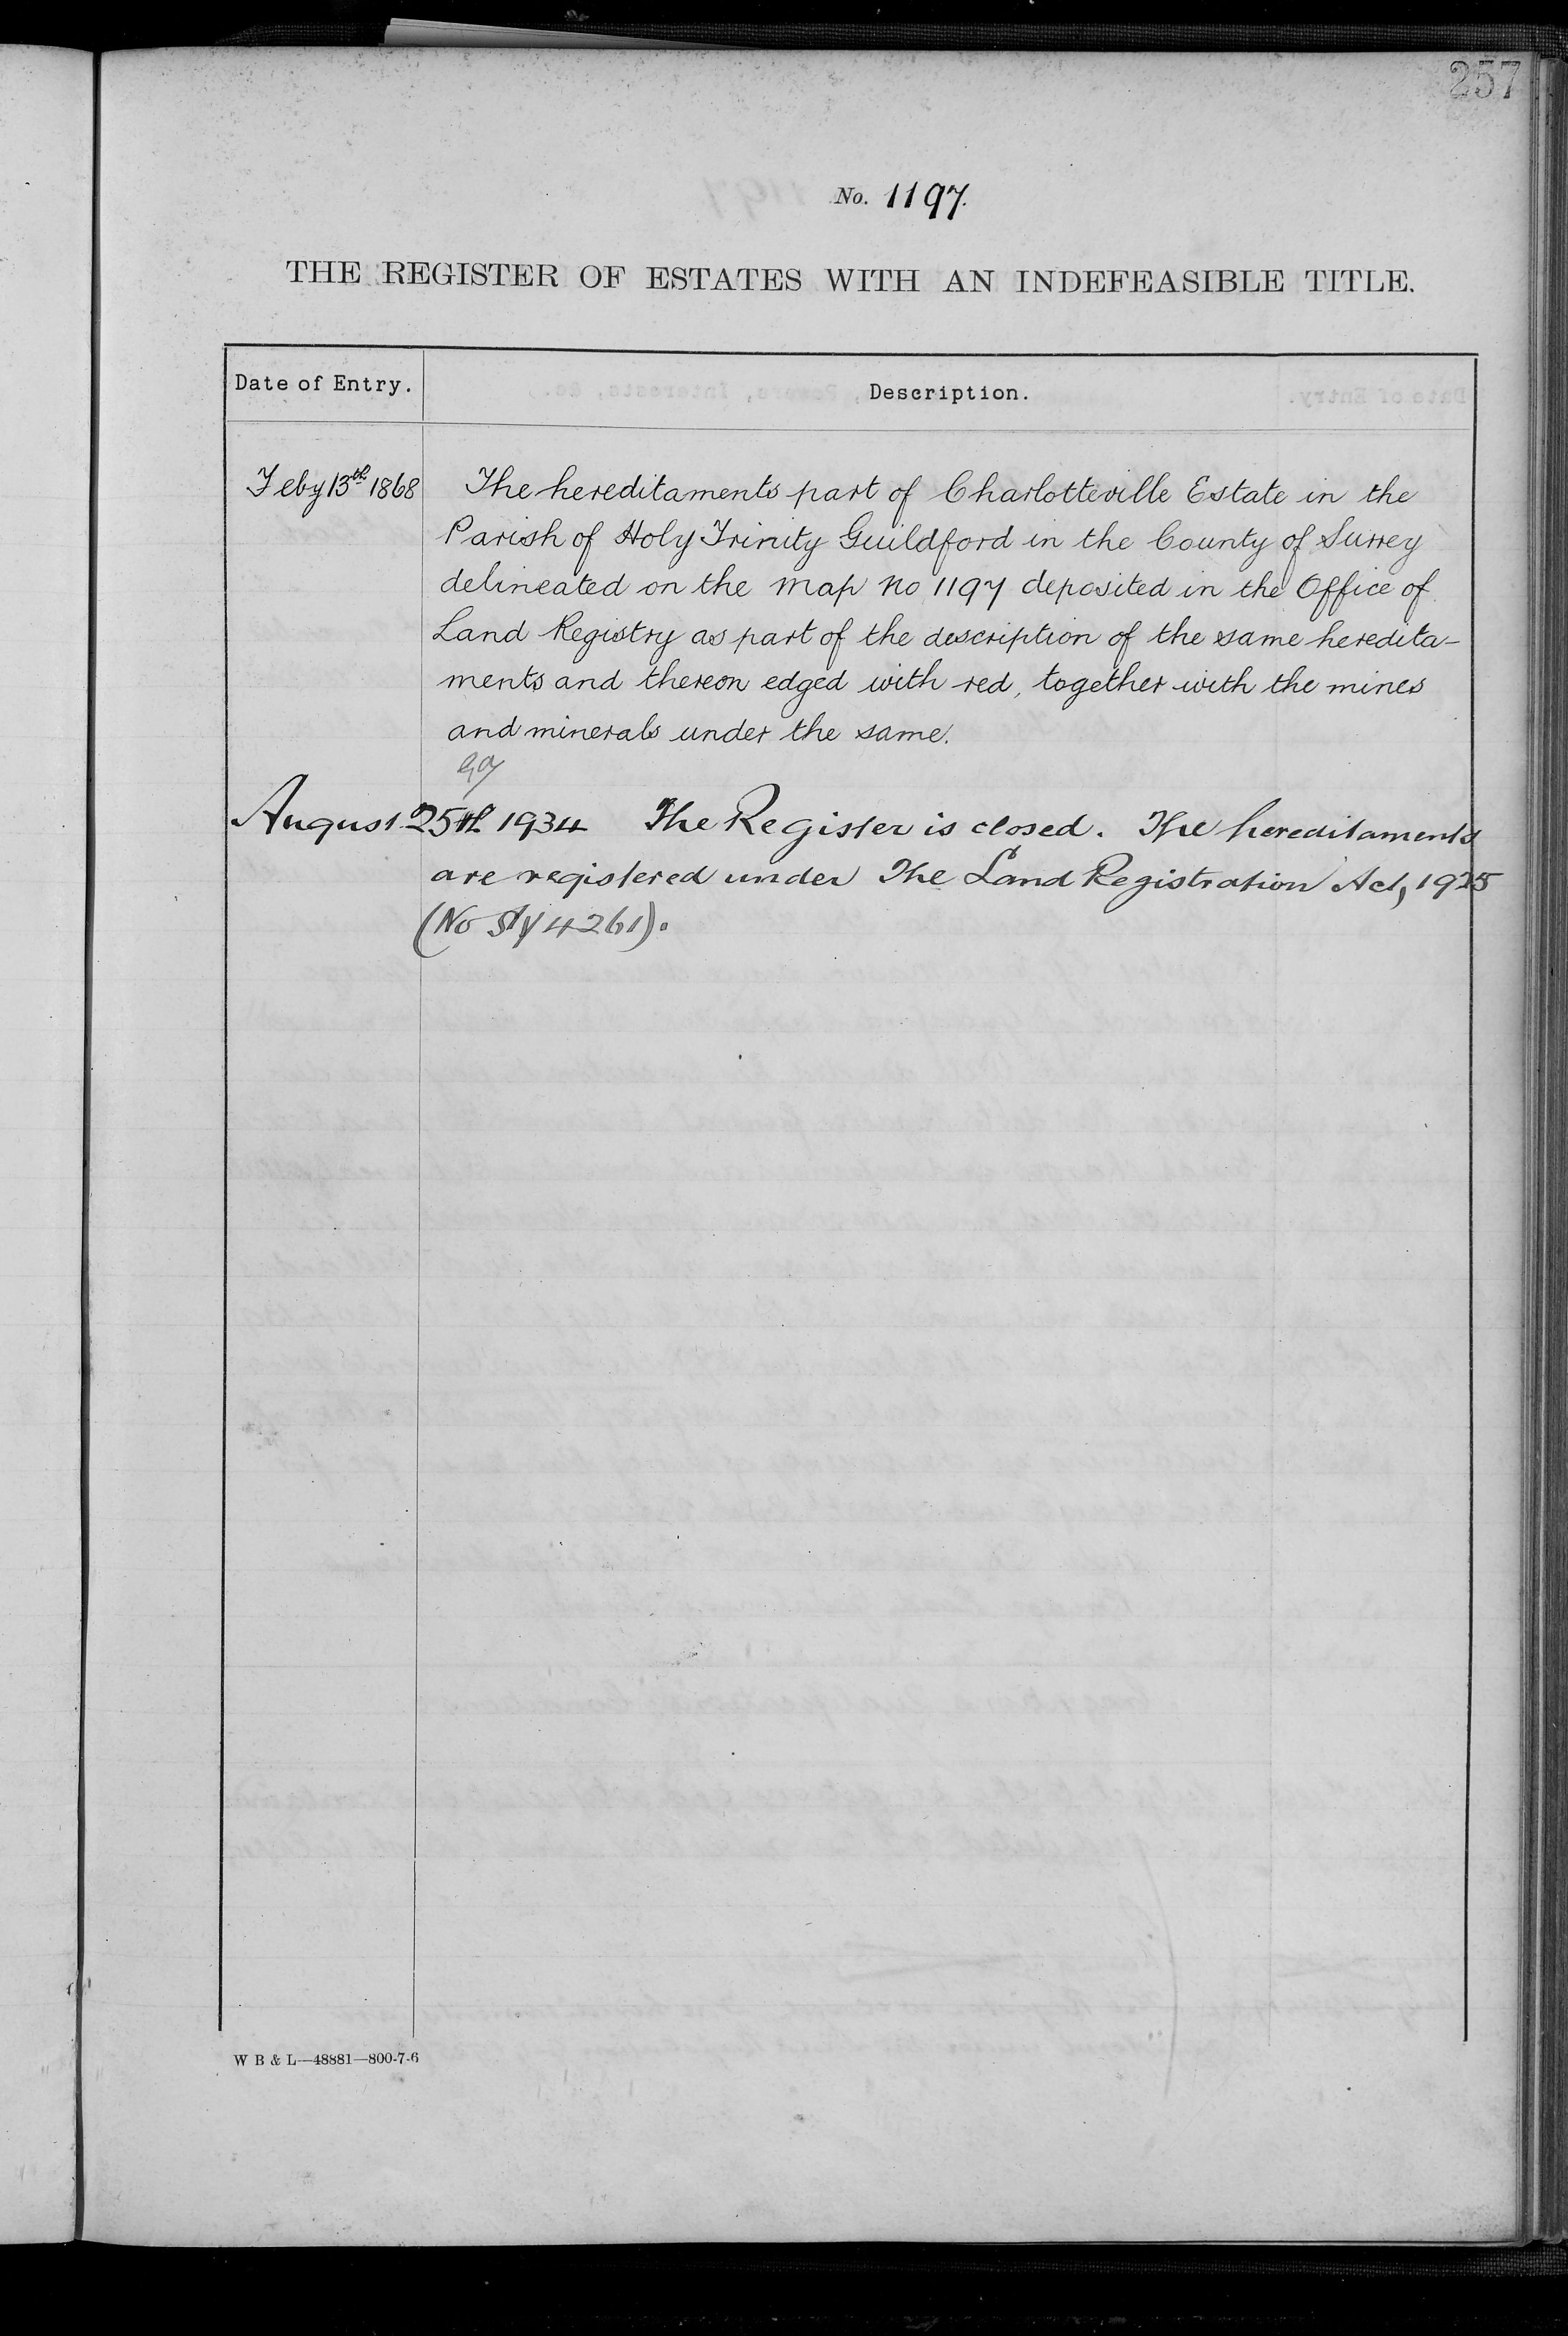 257
No. 1197.
THE REGISTER OF ESTATES WITH AN INDEFEASIBLE TITLE.
Date of Entry. Description.
Feby 13th 1868 The hereditaments part of Charlotteville Estate in the
Parish of Holy Trinity Guildford in the County of Surrey
delineated on the Map No 1197 deposited in the Office of
Land Registry as part of the description of the same heredita-
ments and thereon edged with red, together with the mines
and minerals under the same.
August 25th 1934 The Register is closed. The hereditaments
are registered under The Land Registration Act, 1925
(No Sy 4261).
W B & L—48881—800-7-6